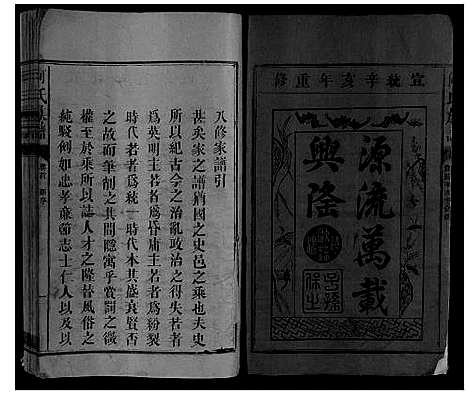 宣統辛亥年重修
源流萬載
興隆
子孫
保之
八修家譜引
甚矣家之譜猶國之史邑之乘也夫史
所以紀古今之治亂政治之得失若者
為英明主若者為昏庸主若者為紛裂
時代若者為統一時代本其盛衰賢否
之故而筆削之其間隱寓乎賞罰之微
權至於乘所以誌人才之隆替風俗之
純駁例如忠孝廉節志士仁人以及以
氏族譜